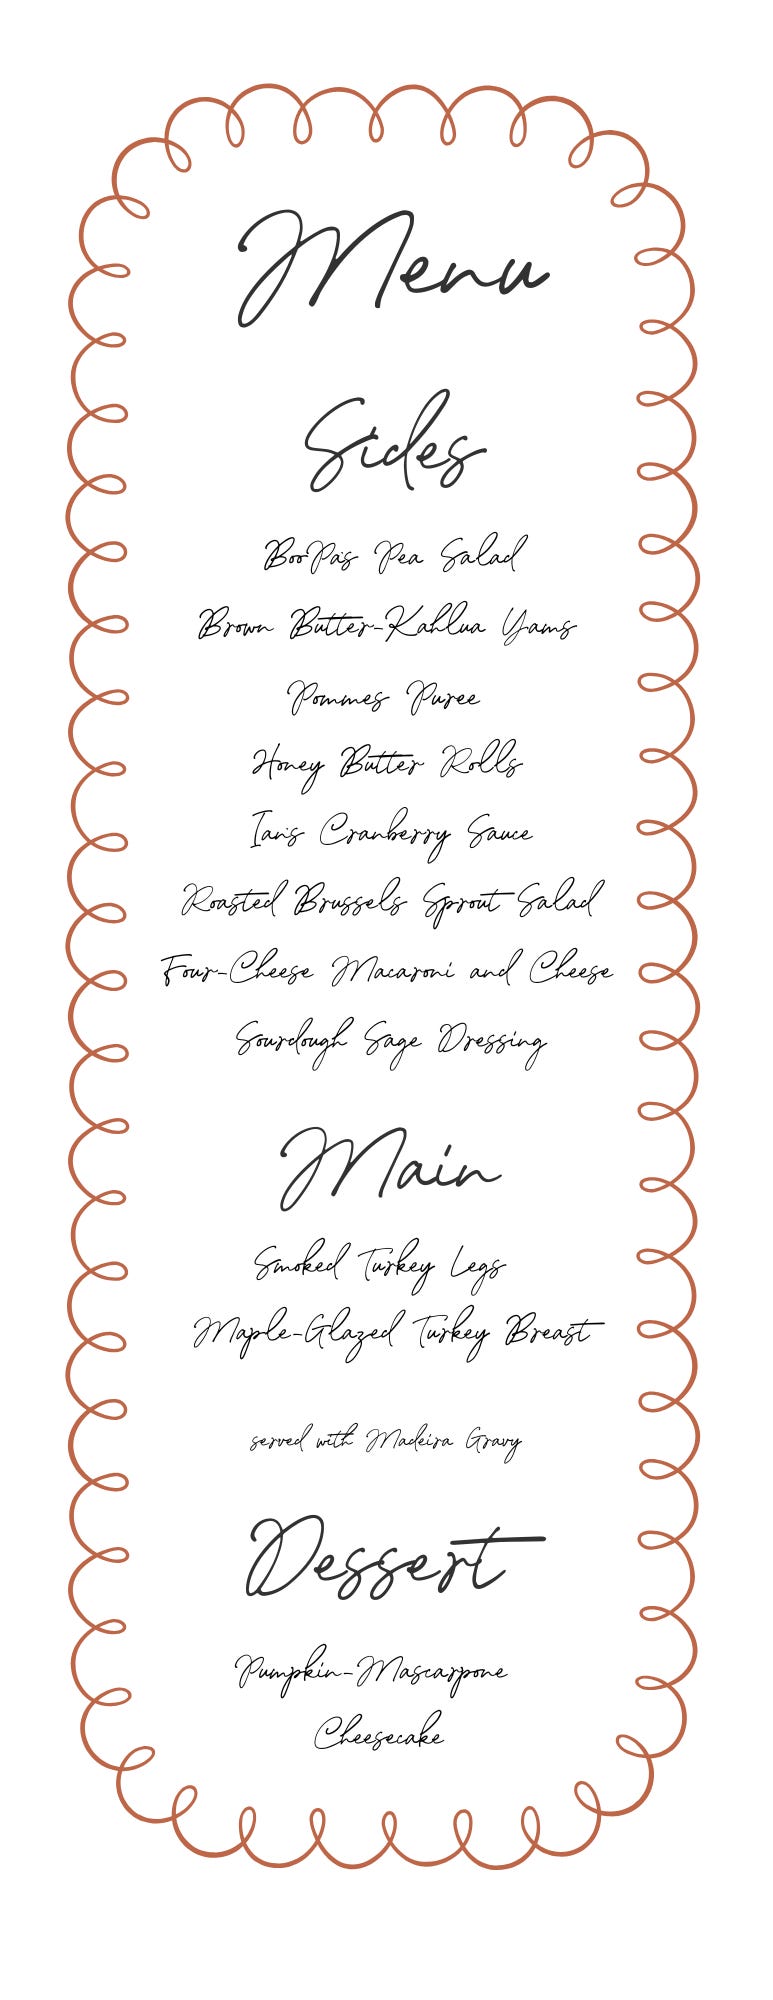 Menu
Sides
BooPa's Pea Salad
Brown Butter-Kahlua Yams
Pommes Puree
Honey Butter Rolls
Ian's Cranberry Sauce
Roasted Brussels Sprout Salad
Four-Cheese Macaroni and Cheese
Sourdough Sage Dressing
Main
Smoked Turkey Legs
Maple-Glazed Turkey Breast
served with Madeira Gravy
Dessert
Pumpkin-Mascarpone
Cheesecake